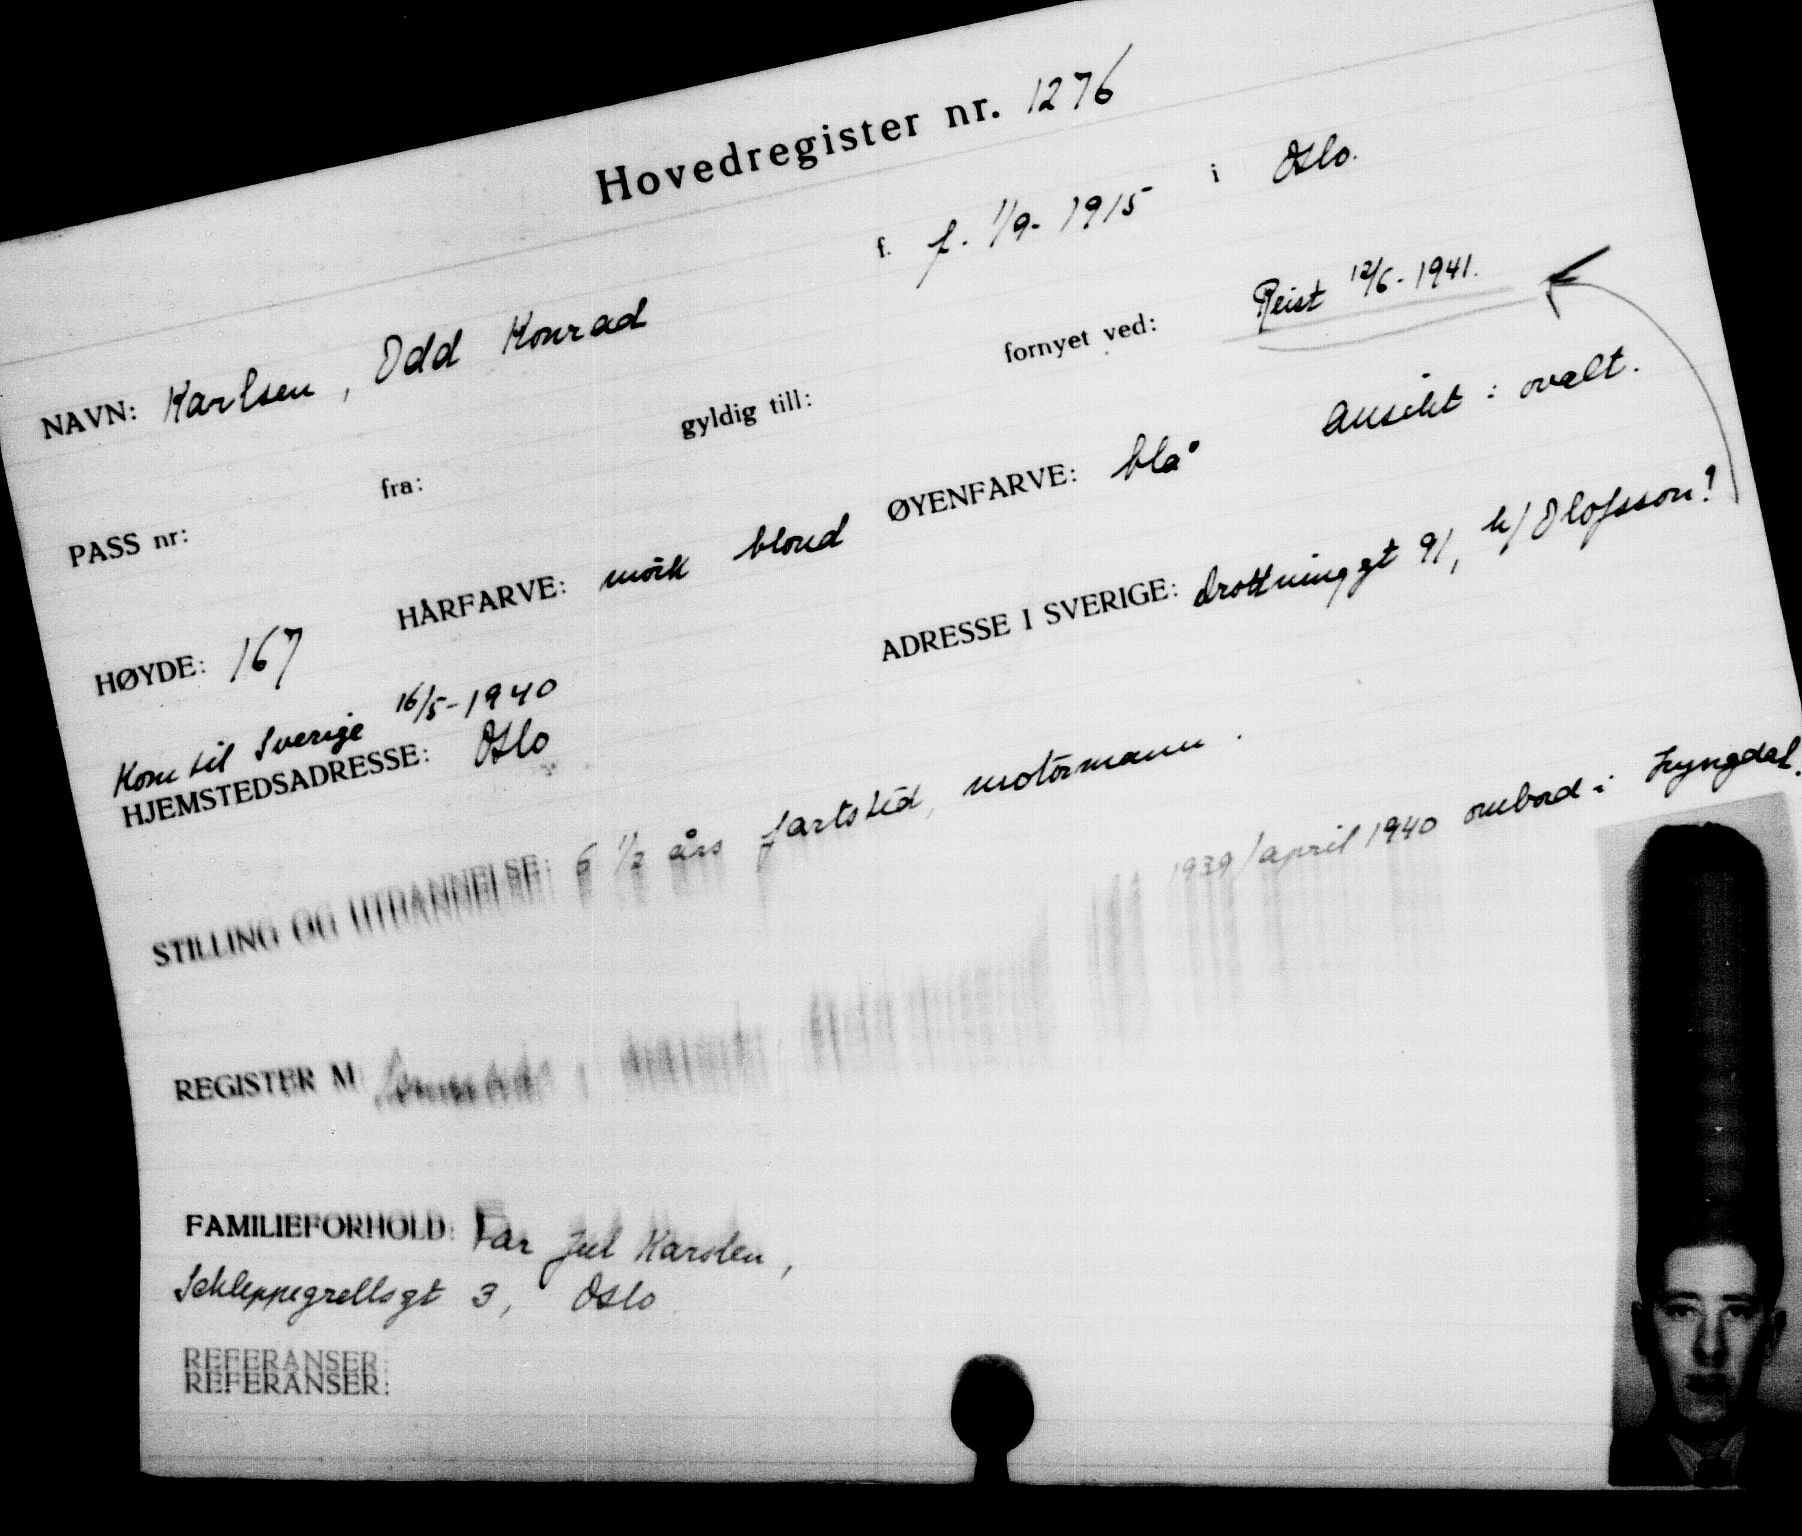 Hovedregister nr. 1276
NAVN: Karlsen, Odd Konrad f. f. 1/9-1915 i Oslo.
PASS nr: fra: gyldig till: fornyet ved: Reist 12/6-1941.
HØYDE: 167 HÅRFARVE: mörk blond ØYENFARVE: blå Ansikt: ovalt.
Kom til Sverige 16/5-1940
HJEMSTEDSADRESSE: Oslo ADRESSE I SVERIGE: Drottninggt 91, h/ Olofsson!
STILLING OG UTDANNELSE: 6 1/2 års fartstid, motormann.
REGISTER M 1939/april 1940 ombord i Lyngdal.
FAMILIEFORHOLD: Far Jul Karslen,
Schleppegrellsgt 3, Oslo
REFERANSER:
REFERANSER: